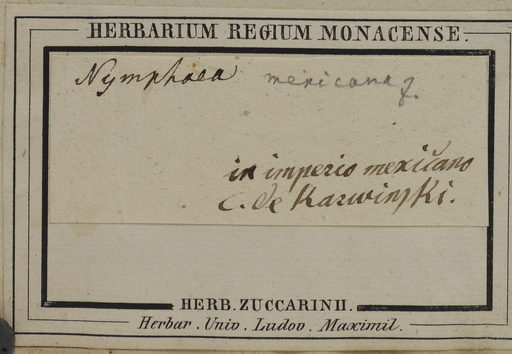 HERBARIUM REGIUM MONACENSE.
Nymphaea mexicana
in imperio mexicano
C. de Karwinſki.
HERB. ZUCCARINII.
Herbar. Univ. Ludov. Maximil.